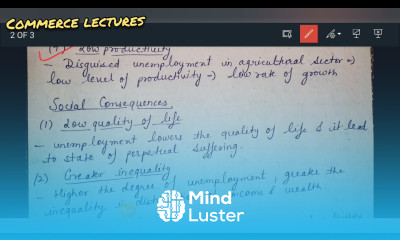 COMMERCE LECTURES
2 OF 3
(4) Low productivity
- Disguised unemployment in agricultural sector ⇒
low level of productivity ⇒ low rate of growth
Social Consequences
(1) Low quality of life
- unemployment lowers the quality of life & it lead
to state of perpetual suffering.
(2) Greater inequality
- Higher the degree of unemployment, greater the
inequality in income & wealth.
Mind
Luster